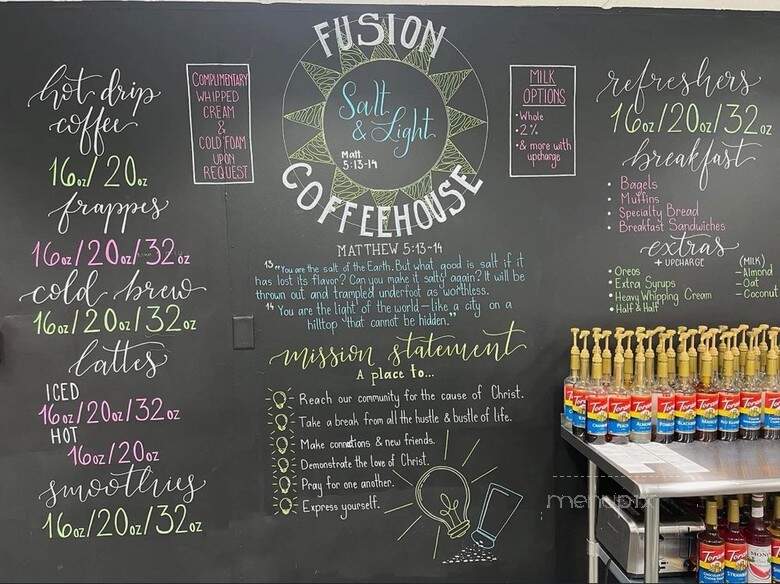 hot drip
coffee
16oz/20oz
frappes
16oz/20oz/32oz
cold brew
16oz/20oz/32oz
lattes
ICED
16oz/20oz/32oz
HOT
16oz/20oz
smoothies
16oz/20oz/32oz
COMPLIMENTARY
WHIPPED
CREAM
&
COLD FOAM
UPON
REQUEST
FUSION
Salt
& Light
Matt.
5:13-14
COFFEEHOUSE
MATTHEW 5:13-14
13 "You are the salt of the Earth. But what good is salt if it
has lost its flavor? Can you make it salty again? It will be
thrown out and trampled underfoot as worthless.
14 You are the light of the world-like a city on a
hilltop that cannot be hidden."
mission statement
A place to...
Reach our community for the cause of Christ.
Take a break from all the hustle & bustle of life.
Make connections & new friends.
Demonstrate the love of Christ.
Pray for one another.
Express yourself.
MILK
OPTIONS
• Whole
• 2%
• & more with
upcharge
refreshers
16oz/20oz/32oz
breakfast
• Bagels
• Muffins
• Specialty Bread
• Breakfast Sandwiches
extras
+ UPCHARGE
• Oreos
• Extra Syrups
• Heavy Whipping Cream
• Half & Half
(MILK)
- Almond
- Oat
- Coconut
Torani
menupix
Torani
MONIN